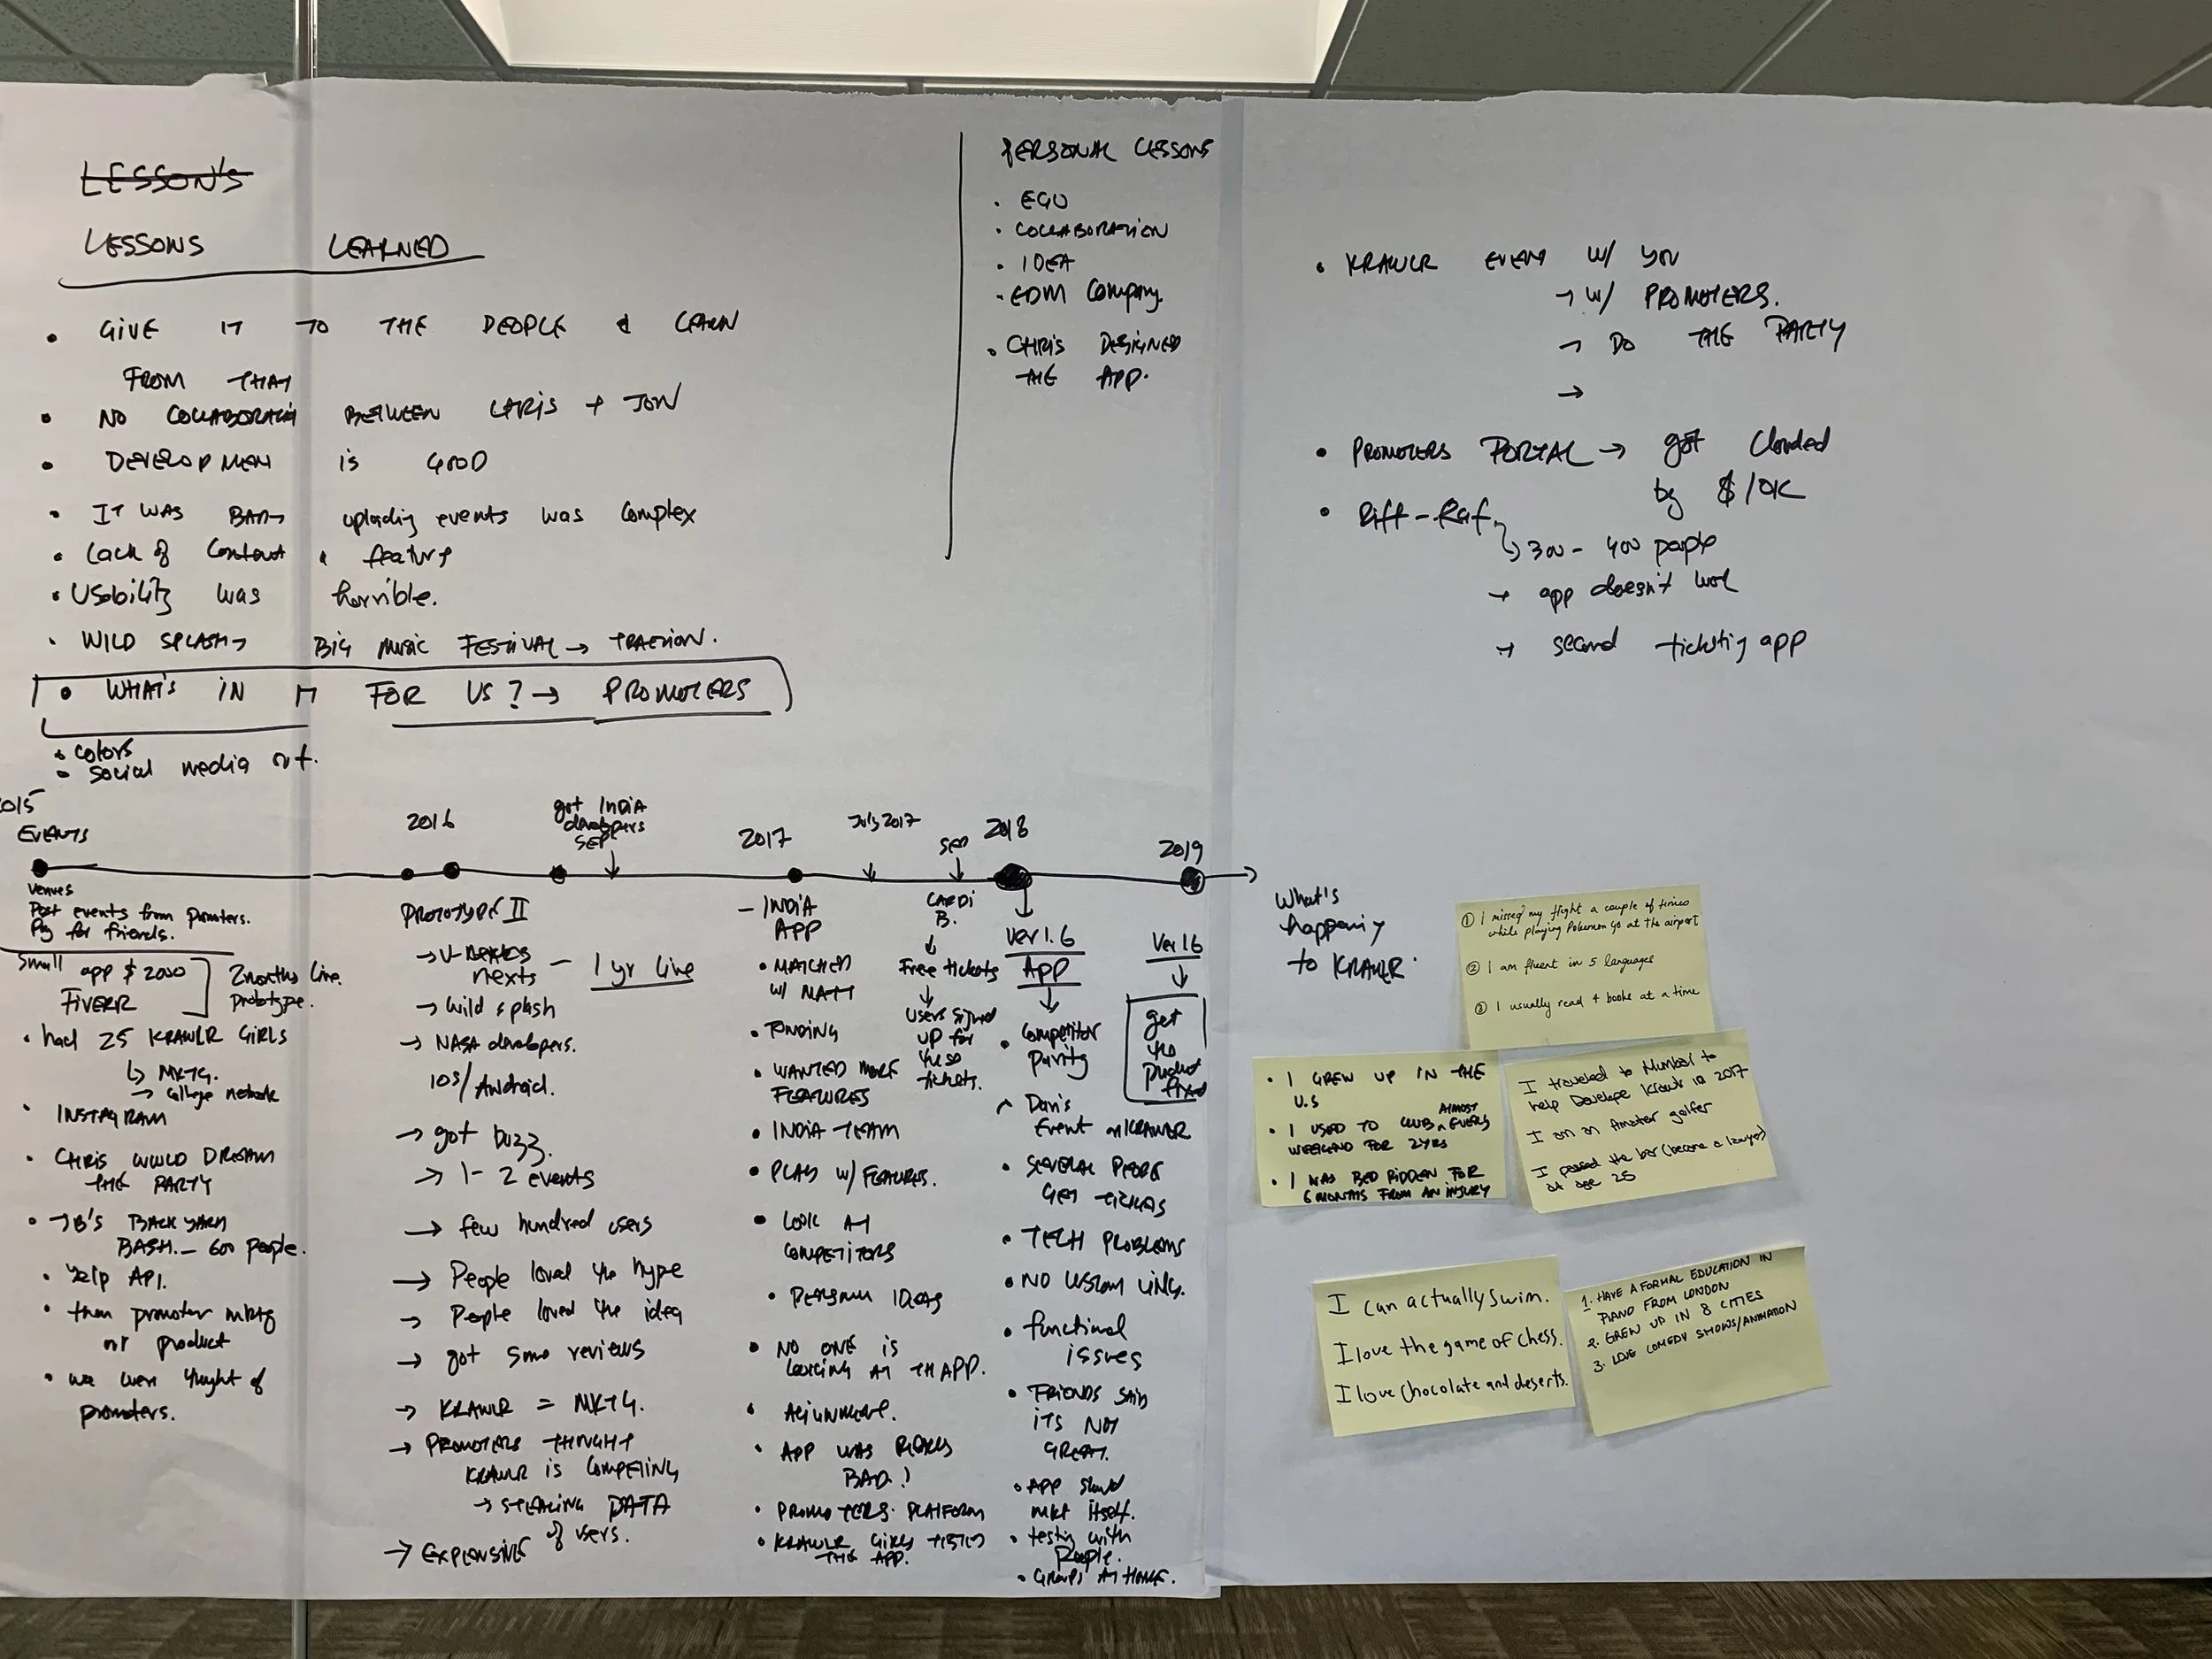 LESSON'S
LESSONS LEARNED
• GIVE IT TO THE PEOPLE & LEARN
FROM THAT
• NO COLLABORATION BETWEEN CHRIS + JON
• DEVELOPMENT IS GOOD
• IT WAS BAD → uploading events was complex
• Lack of Content & feature
• Usability was horrible.
• WILD SPLASH → BIG MUSIC FESTIVAL → TRACTION.
• WHAT'S IN IT FOR US? → PROMOTERS
• colors
• social media
PERSONAL LESSONS
• EGO
• COLLABORATION
• IDEA
• EDM Company.
• CHRIS DESIGNED
THE APP.
• KRAWLR EVENT W/ YOU
→ W/ PROMOTERS.
→ DO THE PARTY
→
• PROMOTERS PORTAL → got Clouded
by $10K
• Riff-Raf
↳ 300 - 400 people
→ app doesn't work
→ second ticketing app
2015
EVENTS
Venues
Post events from promoters.
Pay for friends.
Small app $2000
FIVERR
2months live
prototype.
• had 25 KRAWLR GIRLS
↳ MKTG.
→ College network
• INSTAGRAM
• CHRIS WOULD DREAM
THE PARTY
• JB'S BACKYARD
BASH. — 600 people.
• Yelp API.
• then promoter mktg
not product
• we were thought of
promoters.
2016
got INDIA
developers
SEP
PROTOTYPE II
nexts — 1 yr live
→ wild splash
→ NASA developers.
IOS/Android.
→ got buzz.
→ 1-2 events
→ few hundred users
→ People loved the hype
→ People loved the idea
→ got some reviews
→ KRAWLR = MKTG.
→ PROMOTERS THOUGHT
KRAWLR IS COMPETING
→ STEALING DATA
of users.
→ EXPENSIVE
2017
July 2017
SEP
– INDIA
APP
• MATCHED
W/ MATT
• FUNDING
• WANTED MORE
FEATURES
• INDIA TEAM
• PLAY W/ FEATURES.
• LOOK AT
COMPETITORS
• PERSONAL IDEAS
• NO ONE IS
LOOKING AT TH APP.
• ALIGNMENT.
• APP WAS REALLY
BAD.!
• PROMOTERS PLATFORM
• KRAWLR GIRLS TESTED
THE APP.
CARDI
B.
Free tickets
users signed
up for
these
tickets.
2018
Ver 1.6
APP
• Competitor
parity
Dan's
Event on KRAWLR
• SEVERAL PEOPLE
GET TICKETS
• TECH PROBLEMS
• NO CUSTOM LINKS.
• functional
issues
• FRIENDS SAID
ITS NOT
GREAT.
• APP should
mkt itself.
• testing with
People.
• GROUPS AT HOME.
2019
Ver 1.6
get
the
product
fixed
What's
happening
to KRAWLR.
① I missed my flight a couple of times
while playing Pokemon Go at the airport
② I am fluent in 5 languages
③ I usually read 4 books at a time
• I GREW UP IN THE
U.S
• I USED TO CLUB ALMOST EVERY
WEEKEND FOR 2YRS
• I WAS BED RIDDEN FOR
6 MONTHS FROM AN INJURY
I traveled to Mumbai to
help Develope Krawlr in 2017
I am an Amateur golfer
I passed the bar (became a lawyer)
at age 25
I can actually swim.
I love the game of chess.
I love Chocolate and deserts.
1. HAVE A FORMAL EDUCATION IN
PIANO FROM LONDON
2. GREW UP IN 8 CITIES
3. LOVE COMEDY SHOWS/ANIMATION